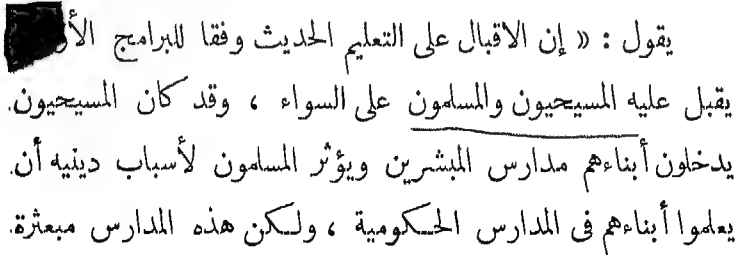 يقول : « إن الاقبال على التعليم الحديث وفقا للبرامج
يقبل عليه المسيحيون والمسلمون على السواء ، وقد كان المسيحيون
يدخلون أبناءهم مدارس المبشرين ويؤثر المسلمون لأسباب دينيه أن
يعلموا أبناءهم فى المدارس الحكومية ، ولكن هذه المدارس مبعثرة